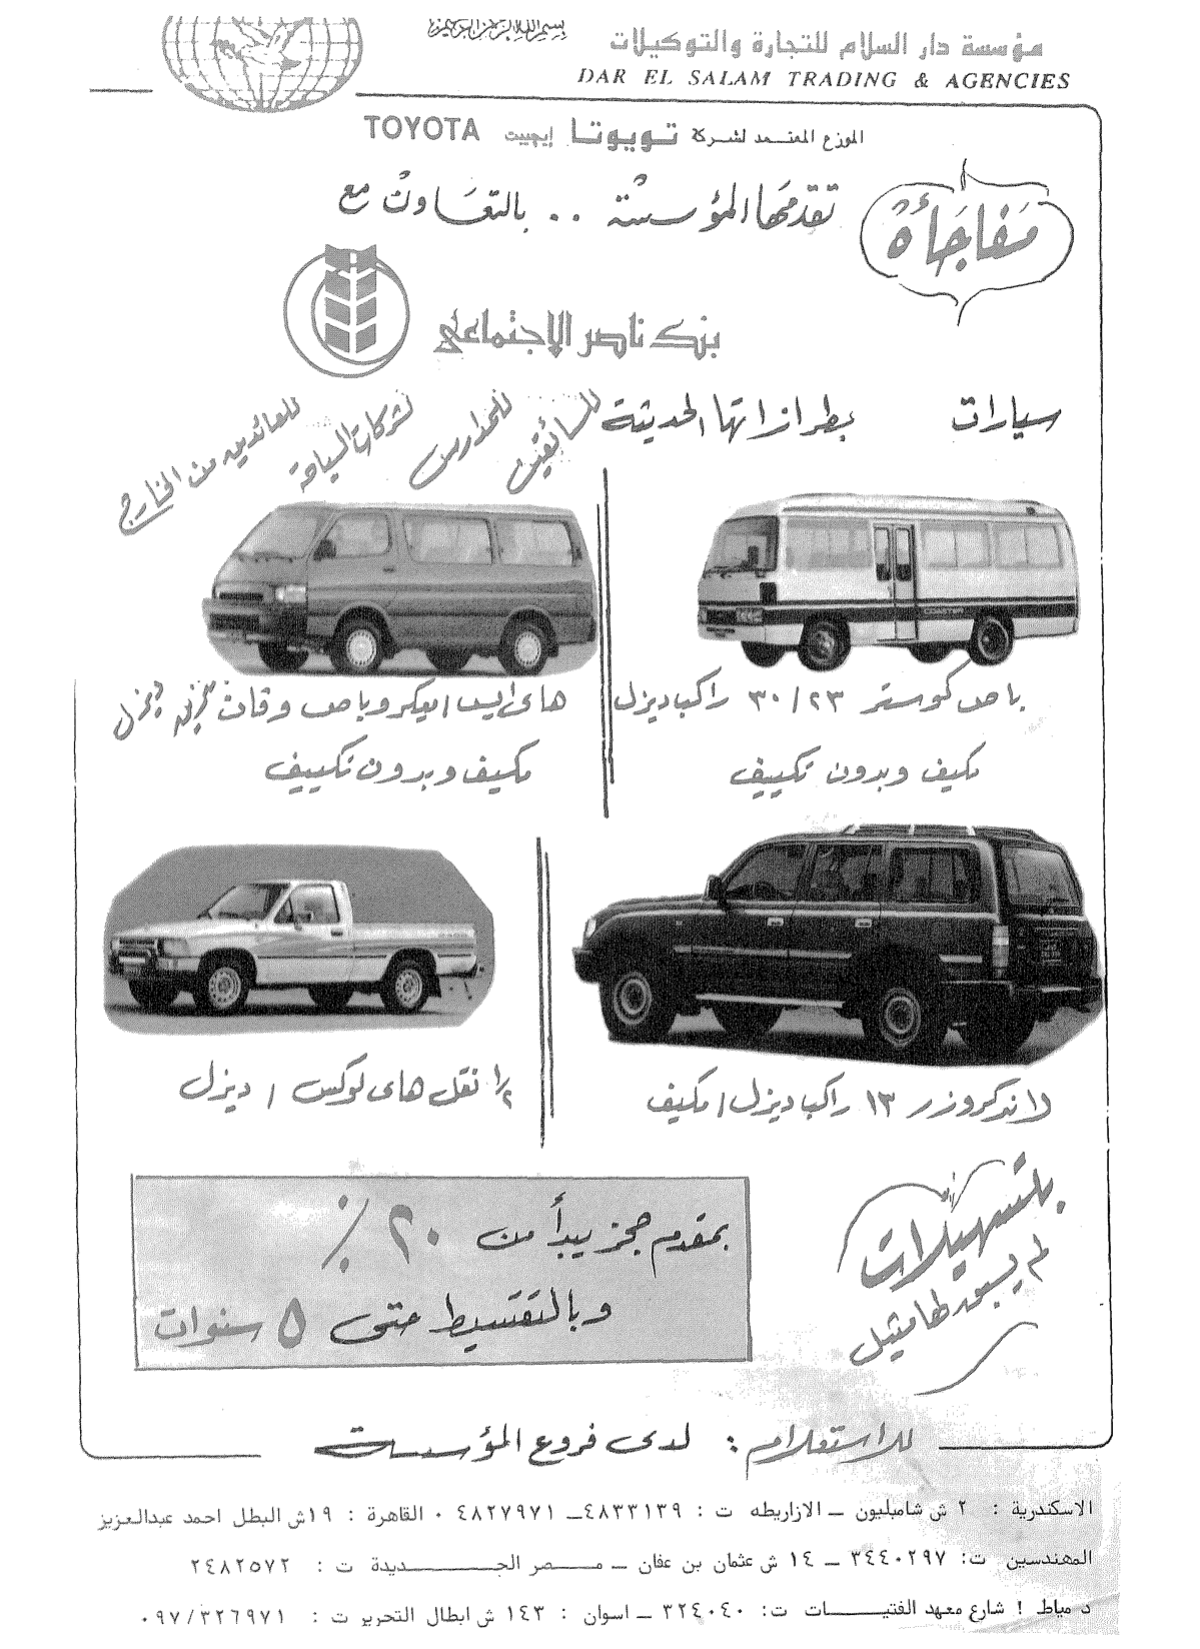 بسم الله الرحمن الرحيم
مؤسسة دار السلام للتجارة والتوكيلات
DAR EL SALAM TRADING & AGENCIES
الموزع المعتمد لشركة تويوتا إيجيبت TOYOTA
مفاجأة
تقدمها المؤسسة .. بالتعاون مع
بنك ناصر الاجتماعى
سيارات بطرازاتها الحديثة
للسائقين
للمدارس
لشركات السياحة
للعائدين من الخارج
COASTER
باص كوستر ٢٣/٣٠ راكب ديزل
مكيف وبدون تكييف
هاى ايس / ميكروباص وفان بنزين ديزل
مكيف وبدون تكييف
لاندكروزر ١٣ راكب ديزل / مكيف
١/٢ نقل هاى لوكس / ديزل
بتسهيلات
لم يسبق لها مثيل
بمقدم حجز يبدأ من ٢٠٪
وبالتقسيط حتى ٥ سنوات
للاستعلام : لدى فروع المؤسسة
الاسكندرية : ٢ ش شامبليون ــ الازاريطه ت : ٤٨٣٣١٣٩ــ ٤٨٢٧٩٧١ ٠ القاهرة : ١٩ش البطل احمد عبدالعزيز
المهندسين ت: ٣٤٤٠٢٩٧ ــ ١٤ ش عثمان بن عفان ــ مصر الجديدة ت : ٢٤٨٢٥٧٢
دمياط ! شارع معهد الفتيات ت: ٣٢٤٠٤٠ ــ اسوان : ١٤٣ ش ابطال التحرير ت : ٠٩٧/٣٢٦٩٧١